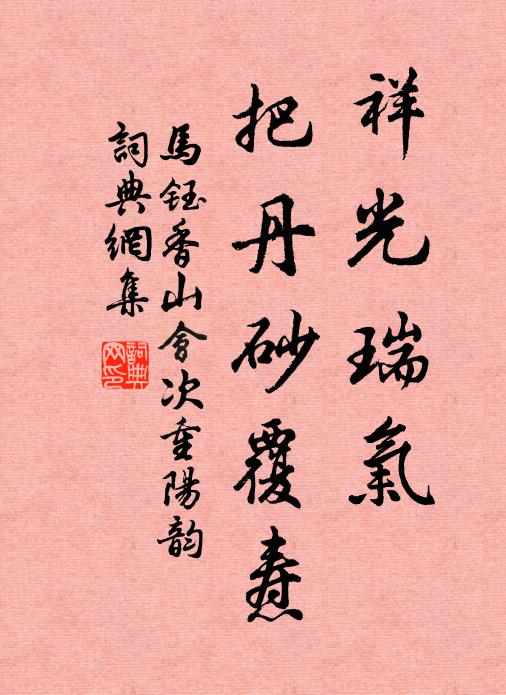 祥光瑞氣
把丹砂覆燾
馬鈺香山會次重陽韵
詞典網集
詞典网印